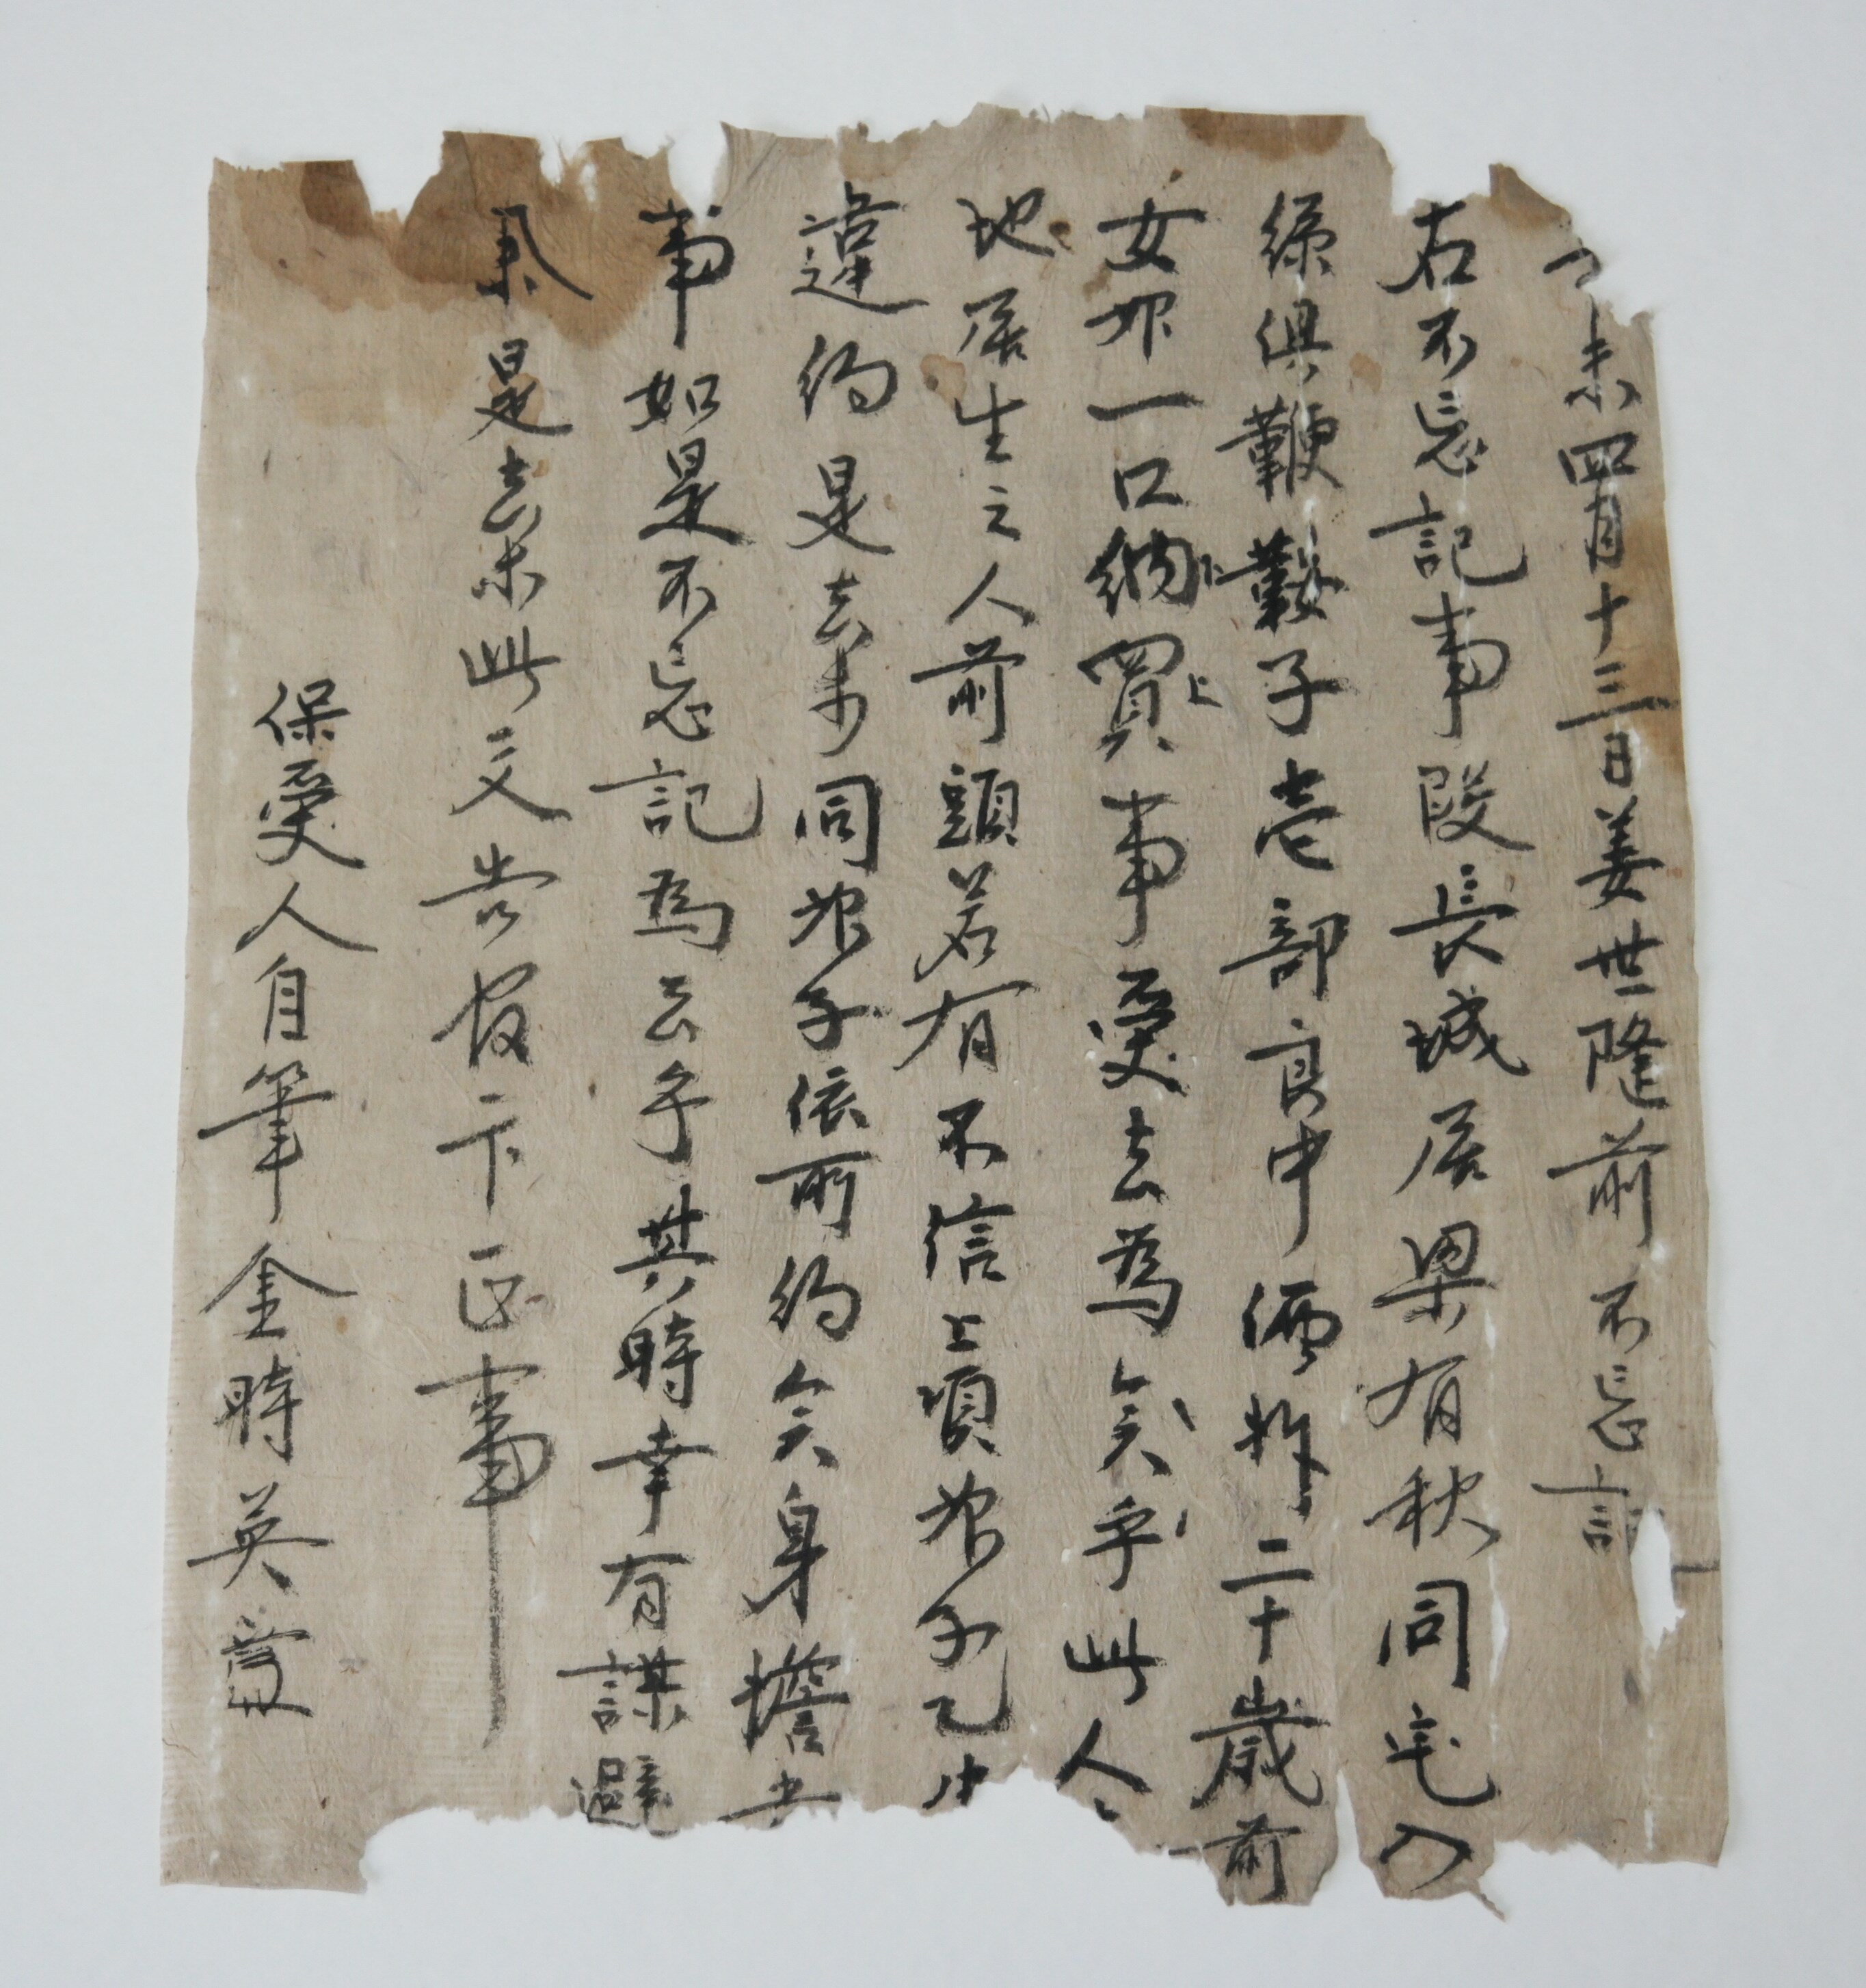 丁未四月十三日姜世隆前不忘記
右不忘記事段長城居梁有秋同宅入
綠俱鞭鞍子壱部良中價折二十歲前
女婢一口納上買上事受去爲矣乎此人
地居生之人前頭若有不信上項婢子乙
違約是去等同婢子依所約矣身擔去
事如是不忘記爲去乎其時幸有謀避
是去等此文告官卞正事
保受人自筆金時英